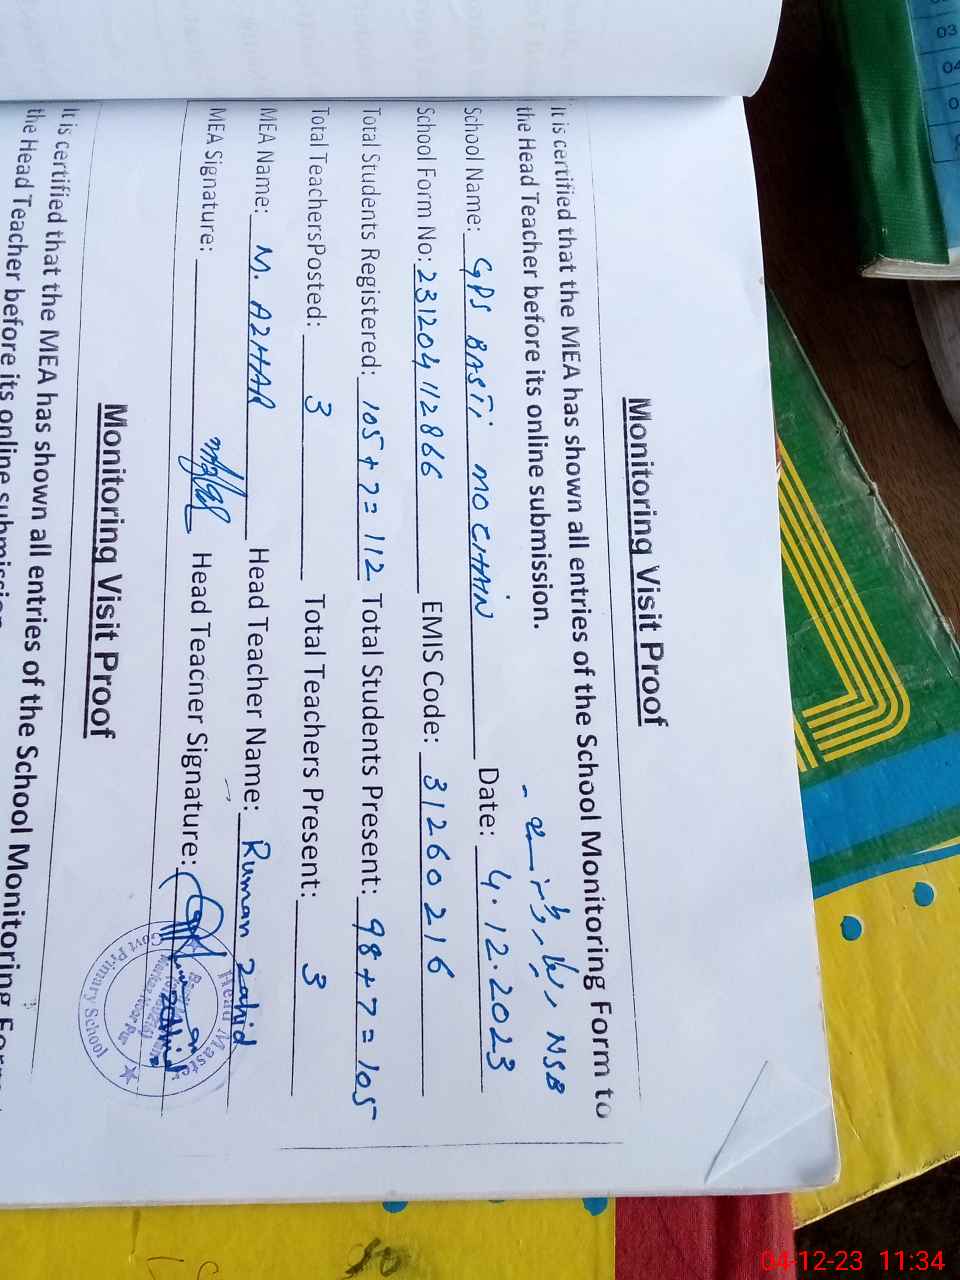 Monitoring Visit Proof
It is certified that the MEA has shown all entries of the School Monitoring Form to
the Head Teacher before its online submission.
NSB
School Name: GPS BASTI MOCHAIN Date: 4.12.2023
School Form No: 231204112866 EMIS Code: 31260216
Total Students Registered: 105+7=112 Total Students Present: 98+7=105
Total TeachersPosted: 3 Total Teachers Present: 3
MEA Name: M. AZHAR Head Teacher Name: Ruman Zahid
MEA Signature: Head Teacher Signature:
Head Master
Govt Primary School
Monitoring Visit Proof
It is certified that the MEA has shown all entries of the School Monitoring Form
the Head Teacher before its online submission.
03
04
04-12-23 11:34